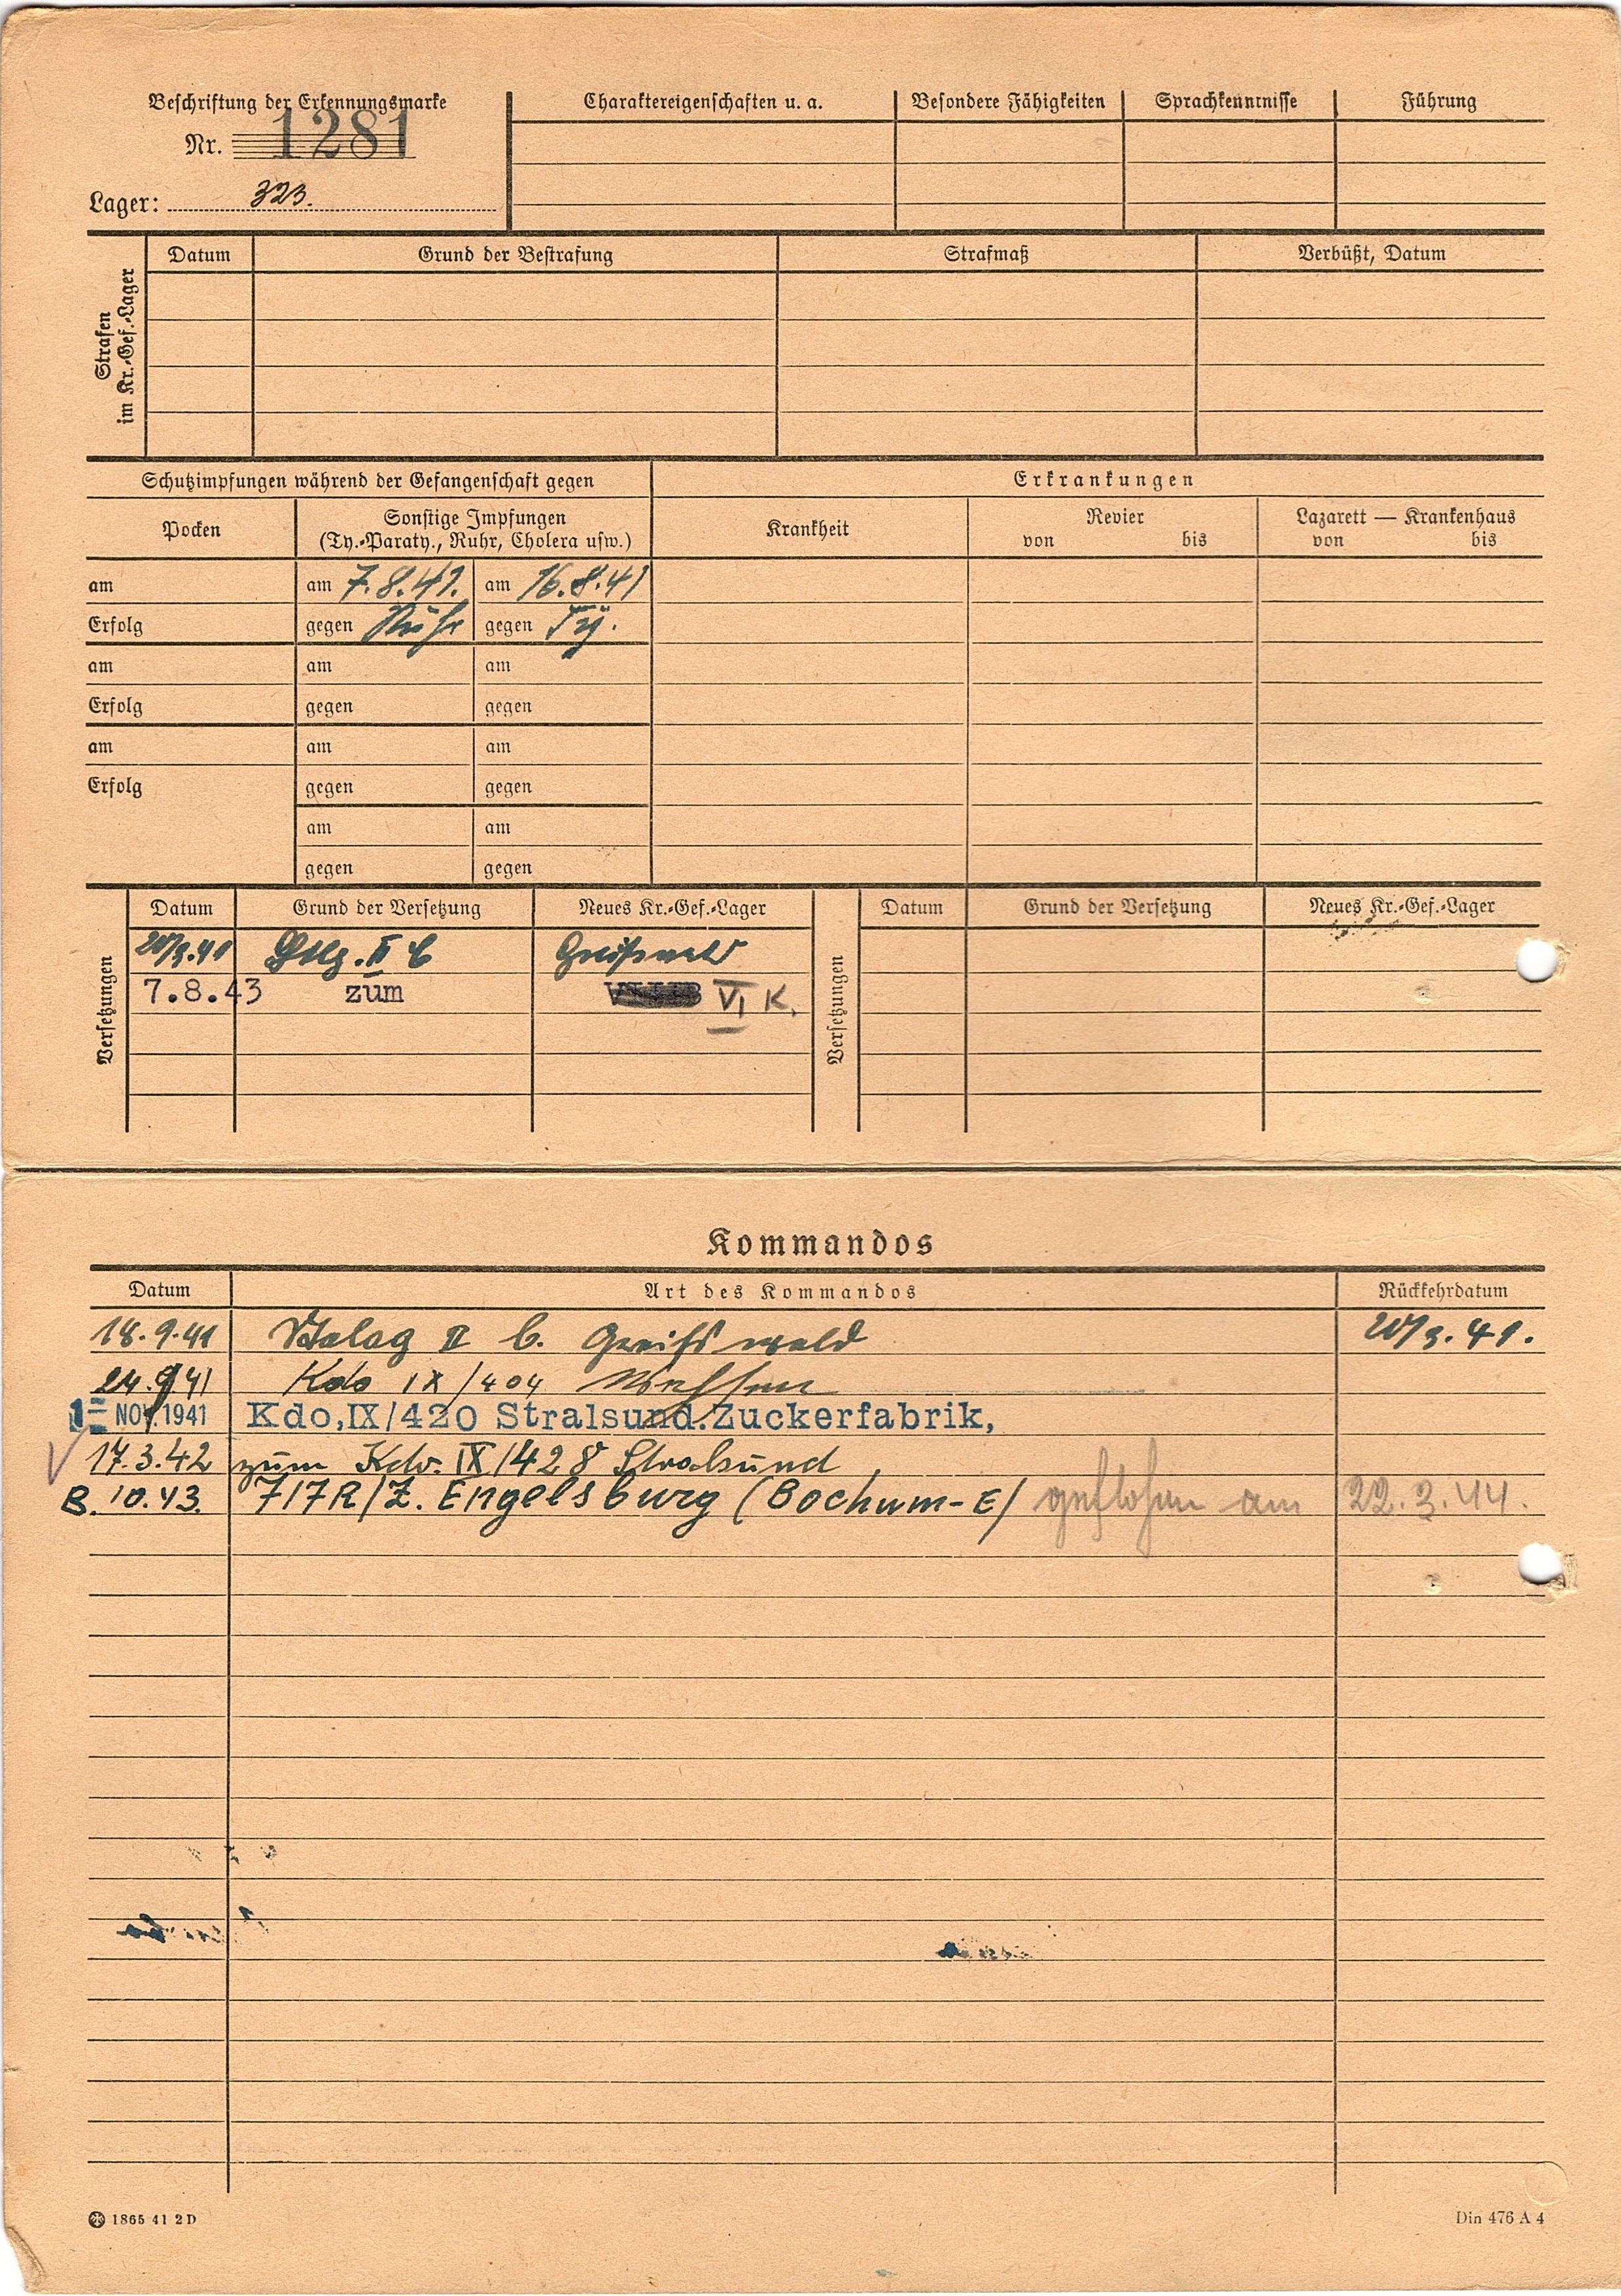 Beschriftung der Erkennungsmarke
Nr. 1281
Lager: 323.
Charaktereigenschaften u. a. Besondere Fähigkeiten Sprachkenntnisse Führung
Strafen im Kr.-Gef.-Lager
Datum Grund der Bestrafung Strafmaß Verbüßt, Datum
Schutzimpfungen während der Gefangenschaft gegen
Erkrankungen
Pocken
Sonstige Impfungen
(Ty.-Paraty., Ruhr, Cholera usw.)
Krankheit
Revier
von bis
Lazarett — Krankenhaus
von bis
am am 7.8.41. am 16.8.41
Erfolg gegen Ruhr gegen Ty.
am am am
Erfolg gegen gegen
am am am
Erfolg gegen gegen
am am
gegen gegen
Versetzungen
Datum Grund der Versetzung Neues Kr.-Gef.-Lager
Stlg. II C Greifswald
7.8.43 zum VI K.
Versetzungen
Datum Grund der Versetzung Neues Kr.-Gef.-Lager
Kommandos
Datum Art des Kommandos Rückkehrdatum
18.9.41 Stalag II C. Greifswald
24.9.41 Kdo IX/404
1= NOV. 1941 Kdo,IX/420 Stralsund.Zuckerfabrik,
17.3.42 zum Kdo. IX/428 Stralsund
10.43. 717R/Z. Engelsburg (Bochum-E) geflohen am 22.3.44.
1865 41 2 D
Din 476 A 4